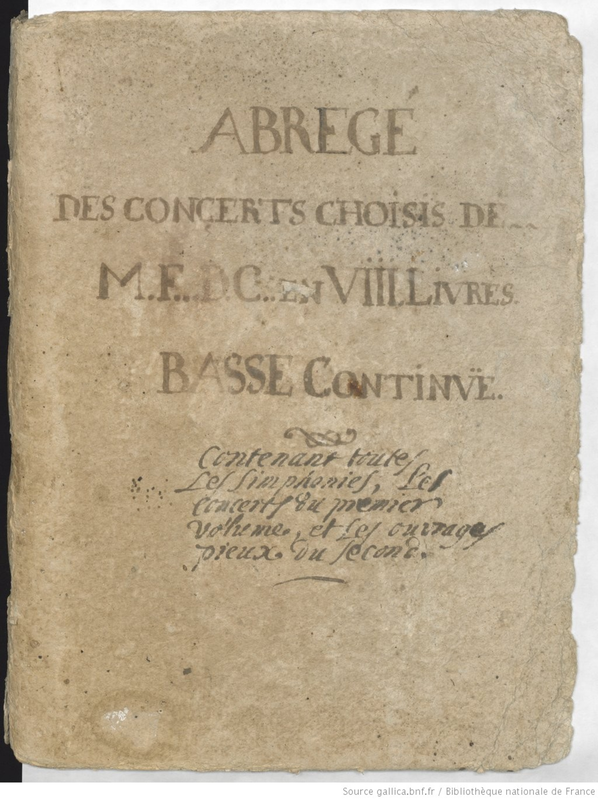 ABREGÉ
DES CONCERTS CHOISIS DE...
M.F...D.C..EN VIIII.LIVRES.
BASSE CONTINVË.
Contenant toutes
Les Simphonies, Les
Concerts du premier
Volume, et Les ouvrages
pieux du Second.
Source gallica.bnf.fr / Bibliothèque nationale de France